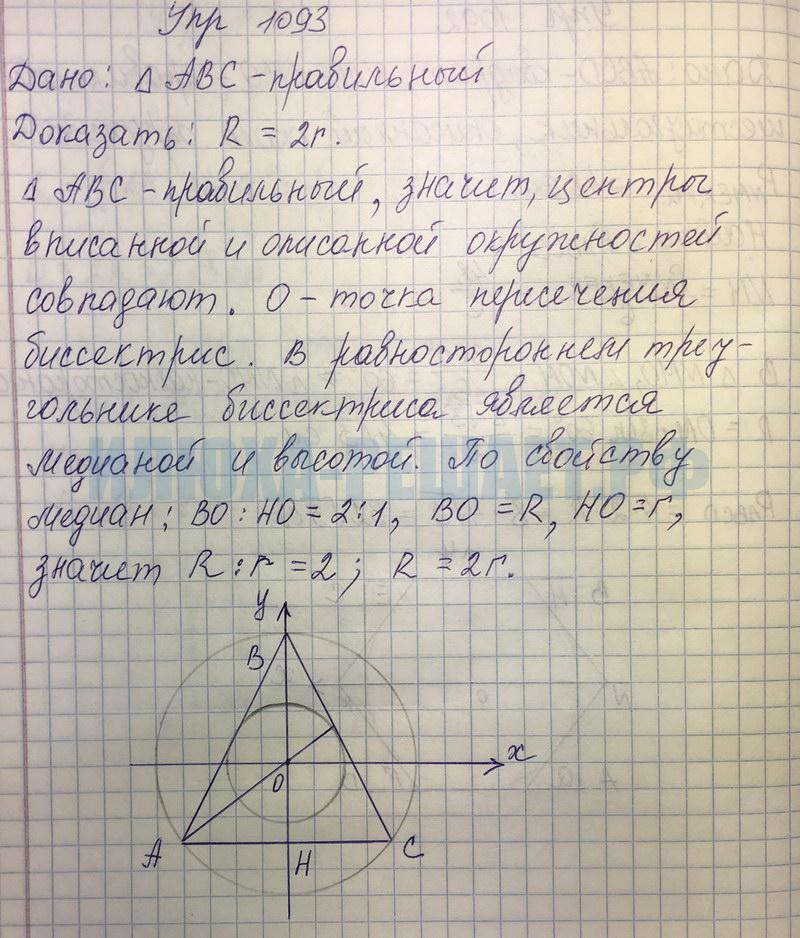 Упр 1093
Дано: Δ ABC - правильный
Доказать: R = 2r.
Δ ABC - правильный, значит, центры
вписанной и описанной окружностей
совпадают. O - точка пересечения
биссектрис. В равностороннем треу-
гольнике биссектриса является
медианой и высотой. По свойству
медиан: BO : HO = 2:1, BO = R, HO = r,
значит R : r = 2; R = 2r.
ИЛЮХА-РЕШАЕТ.РФ
y
B
x
O
A
H
C